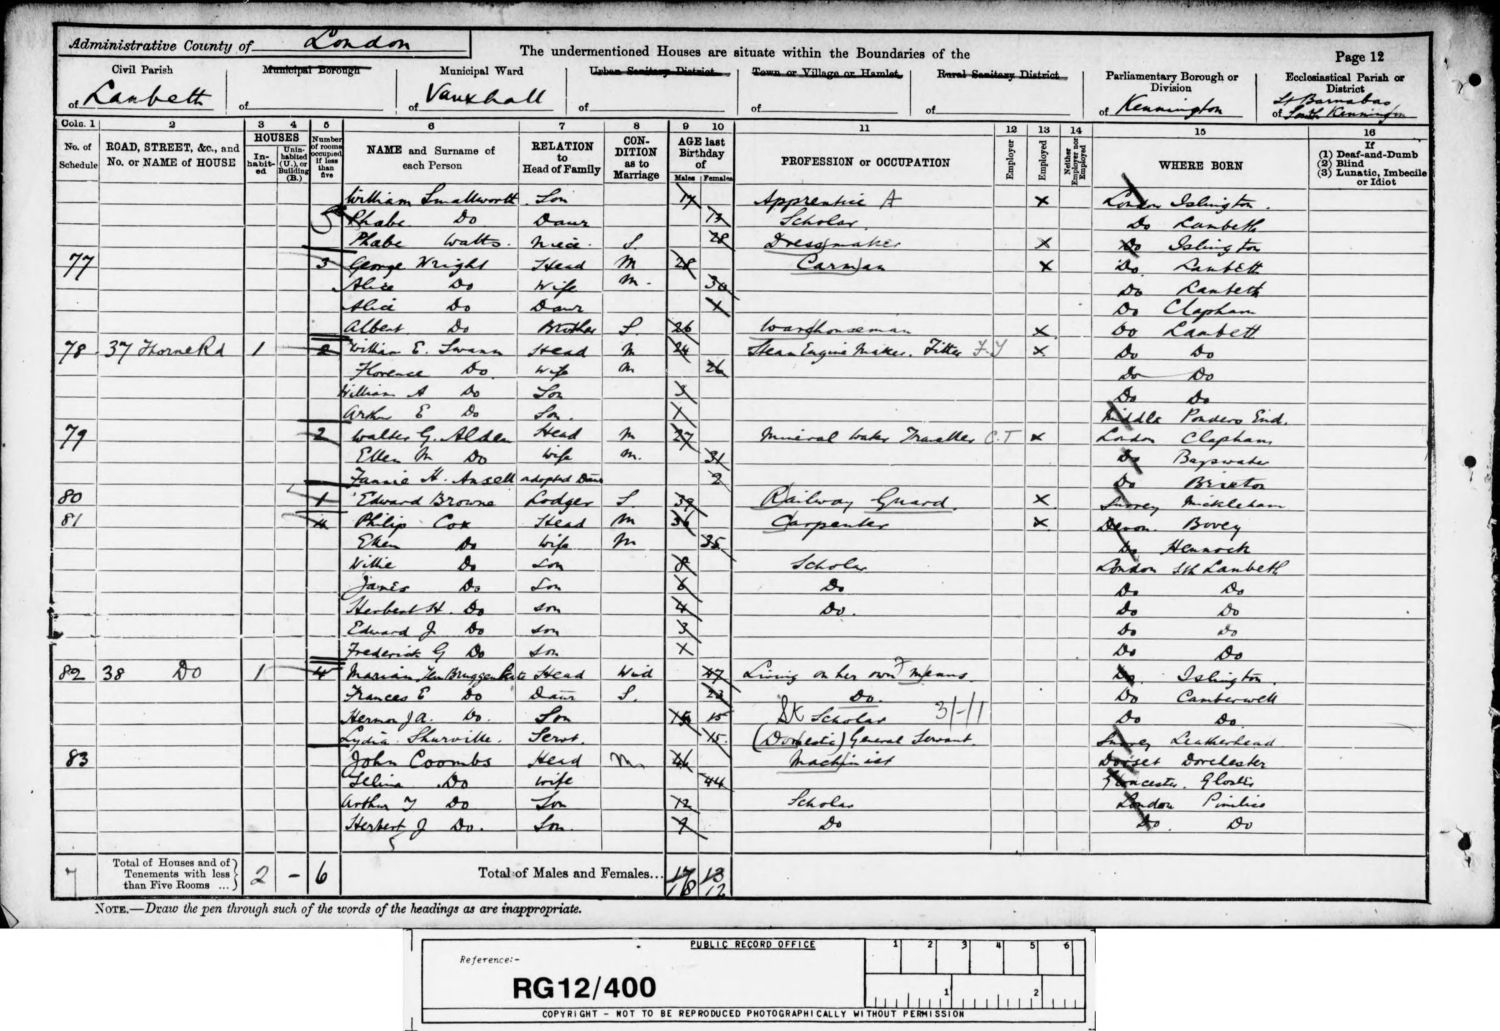 Administrative County of London
The undermentioned Houses are situate within the Boundaries of the
Page 12
Civil Parish of Lambeth
Municipal Borough of
Municipal Ward of Vauxhall
Urban Sanitary District of
Town or Village or Hamlet of
Rural Sanitary District of
Parliamentary Borough or Division of Kennington
Ecclesiastical Parish or District of St Barnabas South Kennington
Cols. 1 2 3 4 5 6 7 8 9 10 11 12 13 14 15 16
No. of Schedule
ROAD, STREET, &c., and No. or NAME of HOUSE
HOUSES
In-habit-ed
Unin-habited (U.), or Building (B.)
Number of rooms occupied if less than five
NAME and Surname of each Person
RELATION to Head of Family
CON-DITION as to Marriage
AGE last Birthday of
Males Females
PROFESSION or OCCUPATION
Employer
Employed
Neither Employer nor Employed
WHERE BORN
If (1) Deaf-and-Dumb (2) Blind (3) Lunatic, Imbecile or Idiot
William Smallworth Son 17 Apprentice A X London Islington
Phabe Do Daur 13 Scholar Do Lambeth
Phabe Watts Niece S. 28 Dressmaker X Do Islington
77 3 George Wright Head M 28 Carman X Do Lambeth
Alice Do Wife M. 30 Do Lambeth
Alice Do Daur Do Clapham
Albert Do Brother S. 26 Warehouseman X Do Lambeth
78 37 Thorne Rd 1 2 William E. Swann Head M 24 Steam Engine Maker. Fitter X Do Do
Florence Do Wife M 26 Do Do
William A Do Son 3 Do Do
Arthur E Do Son 1 Middx Ponders End.
79 2 Walter G. Alden Head M 27 Mineral Water Traveller C.T X London Clapham
Ellen M Do Wife M. 31 Do Bayswater
Fannie H. Ansell adopted Daur 2 Do Brixton
80 1 Edward Browne Lodger S. 39 Railway Guard. X Surrey Mickleham
81 4 Philip Cox Head M 36 Carpenter X Devon Bovey
Ellen Do Wife M 35 Do Hennock
Willie Do Son 8 Scholar London Sth Lambeth
James Do Son 6 Do Do Do
Herbert H. Do Son 4 Do. Do Do
Edward J Do Son 3 Do Do
Frederick G Do Son Do Do
82 38 Do 1 4 Marian Ten Bruggenkate Head Wid 47 Living on her own means Do Islington.
Frances E Do Daur S. 23 Do. Do Camberwell
Do. Son 15 Scholar 3/-/1 Do Do.
Lydia Shurville. Servt. 15. (Domestic) General Servant Surrey Leatherhead
83 John Coombs Head M 46 Machinist Dorset Dorchester
Selina Do Wife 44 Gloucester. Gloster
Arthur T Do Son 12 Scholar London Pimlico
Herbert J Do. Son 9 Do Do Do
7 Total of Houses and of Tenements with less than Five Rooms ... 2 - 6 Total of Males and Females... 17 13
18 12
NOTE.—Draw the pen through such of the words of the headings as are inappropriate.
PUBLIC RECORD OFFICE
1 2 3 4 5 6
Reference:-
RG12/400
1 2
COPYRIGHT - NOT TO BE REPRODUCED PHOTOGRAPHICALLY WITHOUT PERMISSION